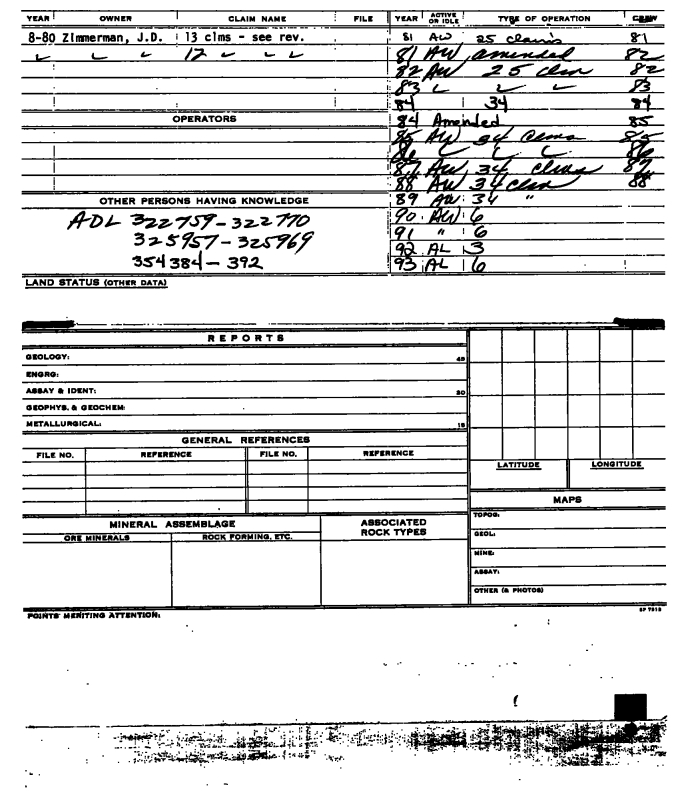 YEAR OWNER CLAIM NAME FILE YEAR ACTIVE OR IDLE TYPE OF OPERATION CREW
8-80 Zimmerman, J.D. 13 clms - see rev. 81 AW 25 claims 81
12 81 AW amended 82
82 AW 25 clm 82
83 83
84 34 84
OPERATORS 84 Amended 85
85 AW 34 clms 85
86 86
87 AW 34 clms 87
88 AW 34 clm 88
OTHER PERSONS HAVING KNOWLEDGE 89 AW 34 "
ADL 322759-322770 90 AW 6
325957-325969 91 " 6
354384-392 92 AL 3
93 AL 6
LAND STATUS (OTHER DATA)
REPORTS
GEOLOGY:
ENGRG:
ASSAY & IDENT:
GEOPHYS. & GEOCHEM:
METALLURGICAL:
GENERAL REFERENCES
FILE NO. REFERENCE FILE NO. REFERENCE
LATITUDE LONGITUDE
MAPS
MINERAL ASSEMBLAGE ASSOCIATED ROCK TYPES
ORE MINERALS ROCK FORMING, ETC.
TOPOG:
GEOL:
MINE:
ASSAY:
OTHER (& PHOTOS)
POINTS MERITING ATTENTION: